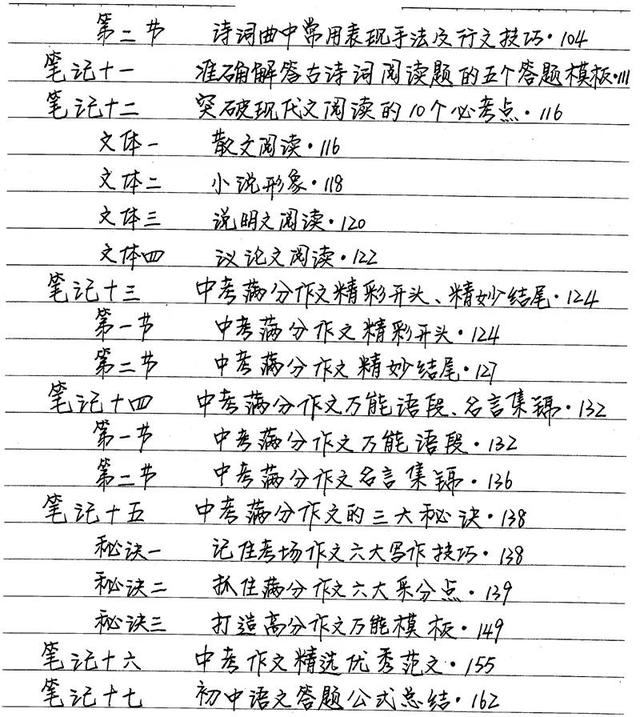 第二节 诗词曲中常用表现手法及行文技巧·104
笔记十一 准确解答古诗词阅读题的五个答题模板·111
笔记十二 突破现代文阅读的10个必考点·116
文体一 散文阅读·116
文体二 小说形象·118
文体三 说明文阅读·120
文体四 议论文阅读·122
笔记十三 中考满分作文精彩开头、精妙结尾·124
第一节 中考满分作文精彩开头·124
第二节 中考满分作文精妙结尾·127
笔记十四 中考满分作文万能语段、名言集锦·132
第一节 中考满分作文万能语段·132
第二节 中考满分作文名言集锦·136
笔记十五 中考满分作文的三大秘诀·138
秘诀一 记住考场作文六大写作技巧·138
秘诀二 抓住满分作文六大采分点·139
秘诀三 打造高分作文万能模板·149
笔记十六 中考作文精选优秀范文·155
笔记十七 初中语文答题公式总结·162